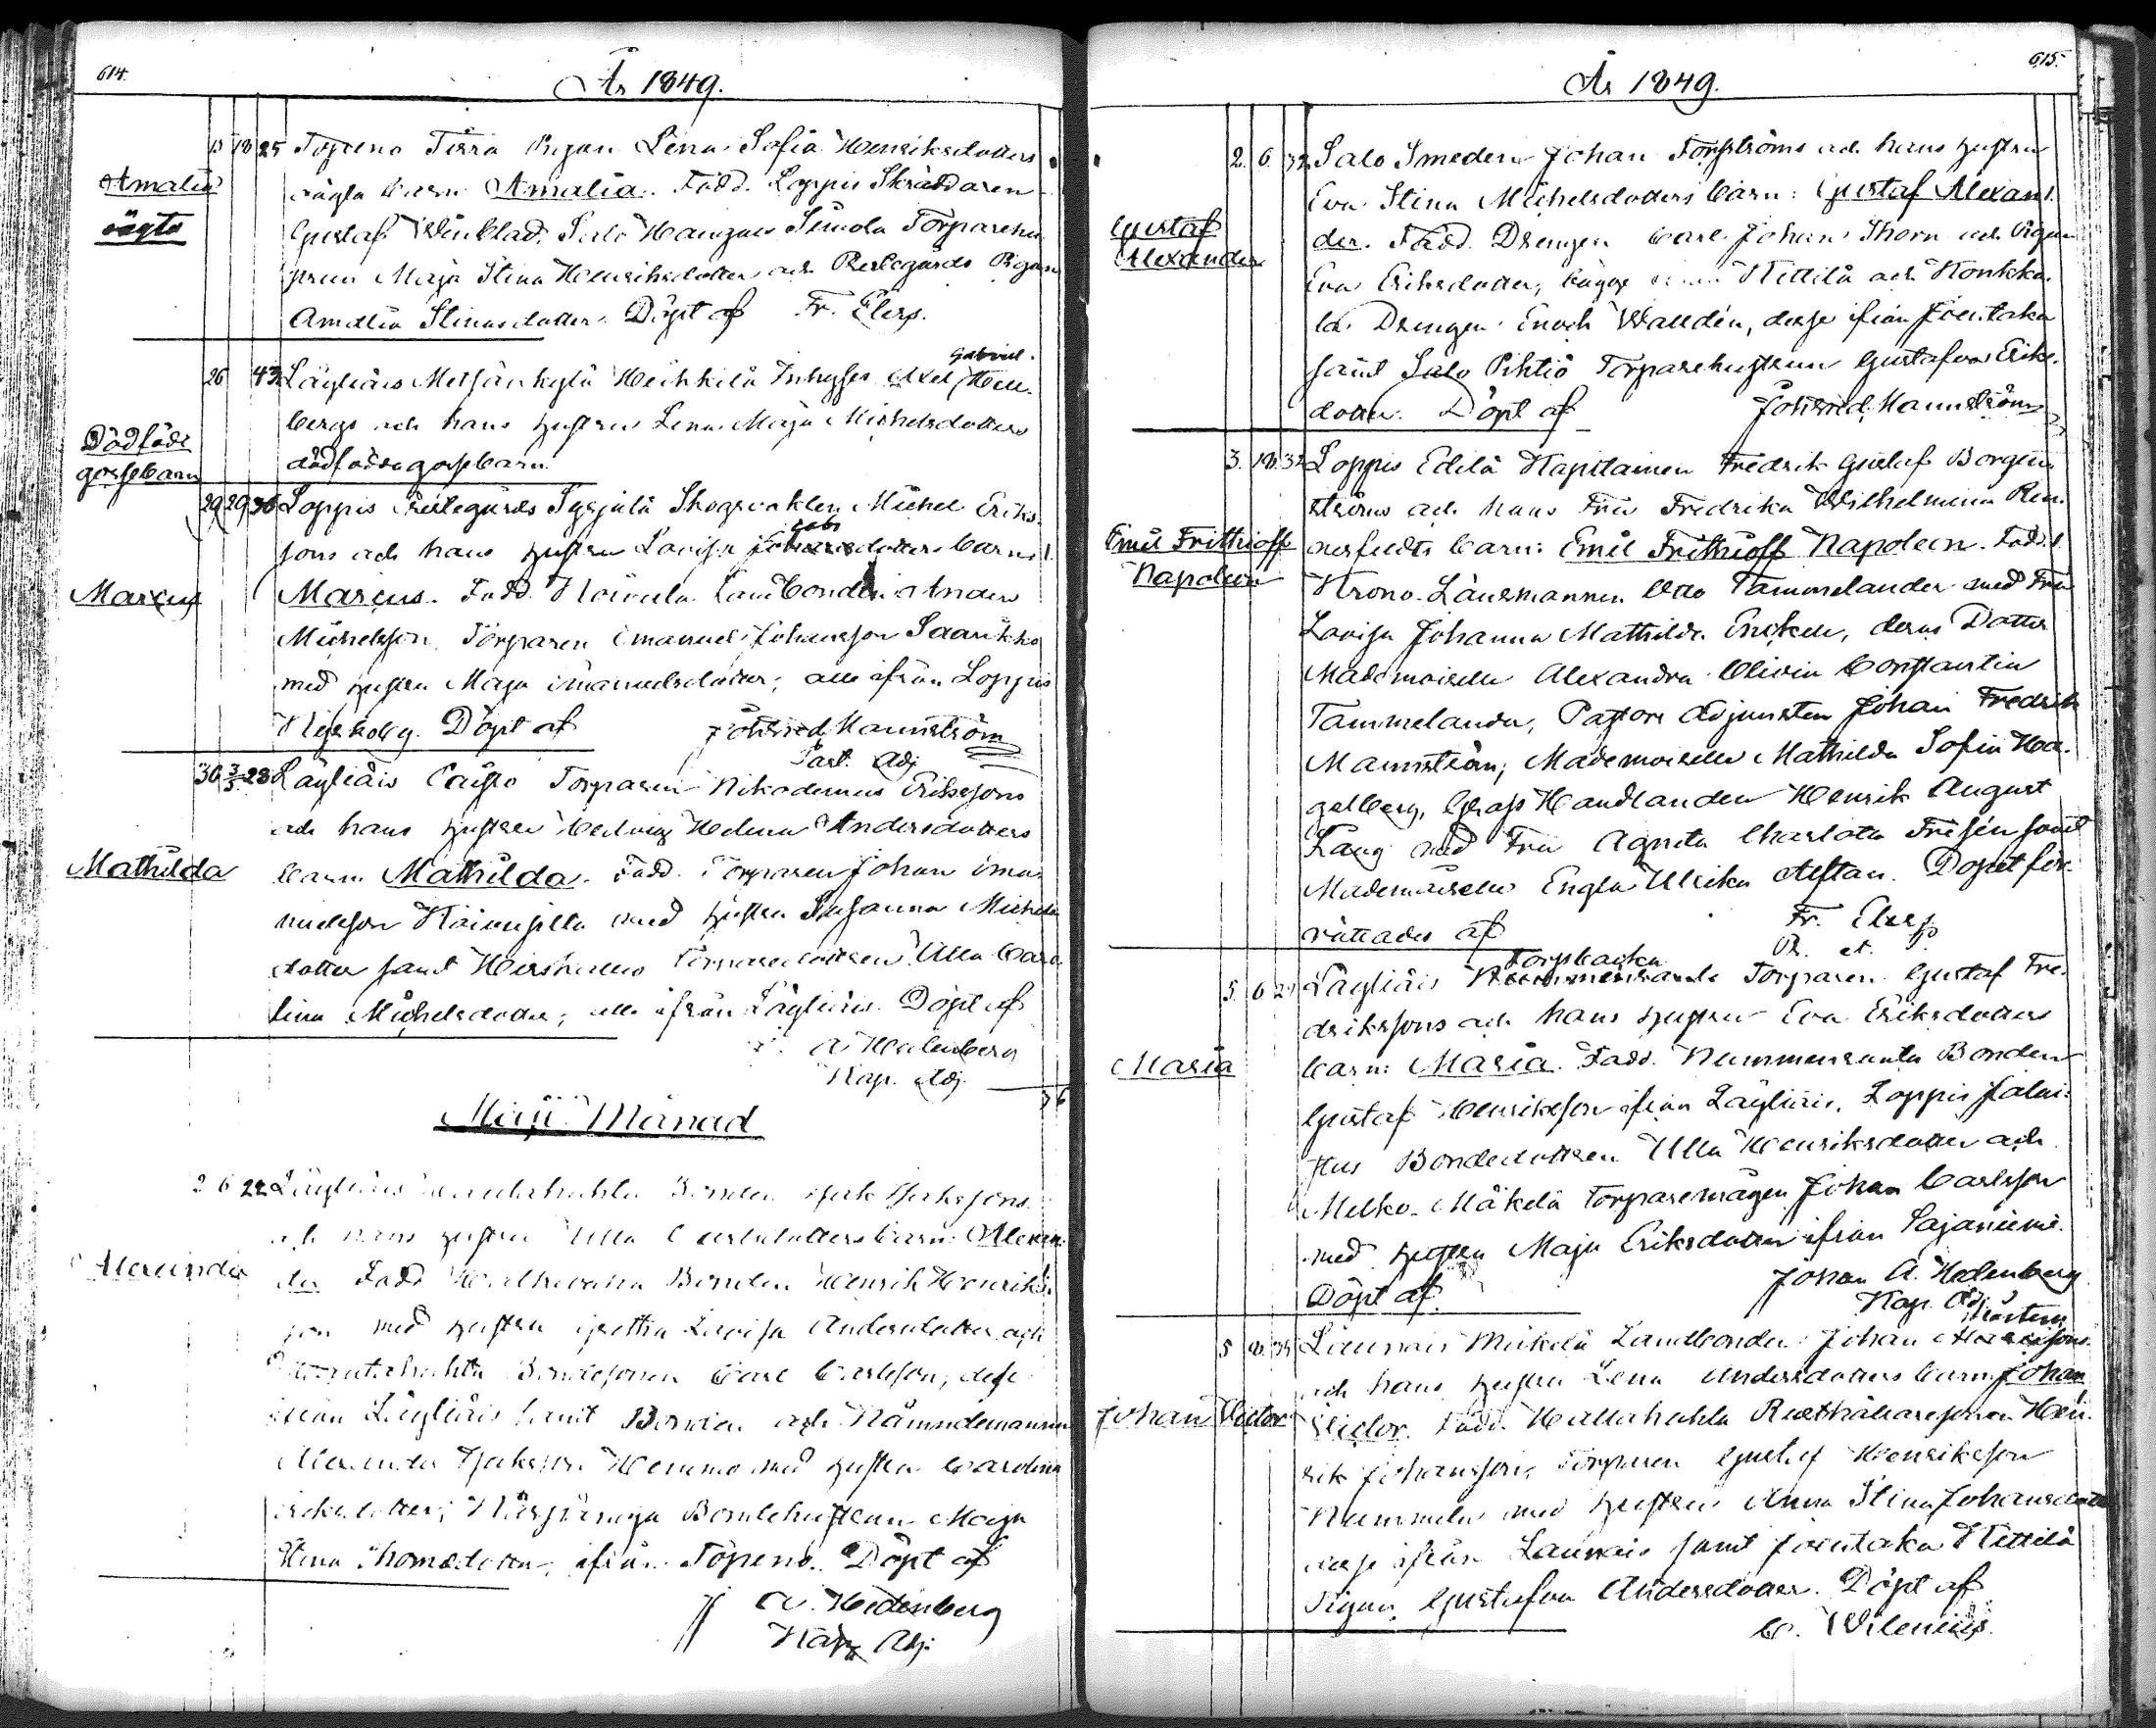 614.
År 1849.
Amalia
oägta
15 18 25 Topeno Terra Pigan Lena Sofia Henriksdotters
oägta barn Amalia. Fadd. Loppis Skräddaren
Gustaf Winblad, Salo Simola Torparehu
strun Maja Stina Henriksdotter och Prestegårds Pigan
Amalia Stinasdotter. Döpt af Fr. Elers.
Gabriel
26 43 Läyliäis Metsänkylä Heikkilä Inhyses Axel Hed
bergs och hans hustru Lena Maja Michelsdotters
Dödföde
gossebarn
dödfödda gossebarn.
29 29 36 Loppis Prestegårds Syrjälä Skogsvakten Michel Eriks
sons och hans hustru Lovisa dotters barn
Marcus
Marcus. Fadd. Landbonden Anders
Michelsson, Torparen Emanuel Johansson Saarikko
med hustru Maja Emanuelsdotter; alla ifrån Loppis
Kyrkoby. Döpt af Joh. Fred. Mannström
Past. Adj.
30 3/5 28 Läyliäis Torparen Nikodemus Erikssons
och hans hustru Hedvig Helena Andersdotters
Mathilda
barn Mathilda. Fadd. Torparen Johan Ema
nuelsson med hustru Susanna Michels
dotter samt Torparedottren Ulla Caro
lina Michelsdotter; alla ifrån Läyliäis. Döpt af
A. Hedenberg
Kap. Adj.
36
Maji Månad
2 6 22 Läyliäis Bonden Isak Isakssons
och hans hustru Ulla Carlsdotters barn: Alexan
Alexander
der Fadd Bonden Henrik Henriks
son med hustru Gretha Lovisa Andersdotter och
Bondesonen Carl Carlsson, desse
ifrån Läyliäis samt Bonden och Nämndemannen
Alexander Isaksson Hemmo med hustru Carolina
Eriksdotter; Bondehustrun Maja
Stina Thomasdotter, ifrån Topeno. Döpt af
A. Hedenberg
Kap. Adj.
615.
År 1849.
2. 6. 32 Salo Smeden Johan Forsströms och hans hustru
Eva Stina Michelsdotters barn: Gustaf Alexan
Gustaf
Alexander
der. Fadd. Drengen Carl Johan Thorn och Pigan
Eva Eriksdotter, begge Kettilä och Konkka
la Drengen Enoch Walldén, desse ifrån Joentaka
samt Salo Pihtiö Torparehustrun Gustafva Eriks
dotter. Döpt af Joh. Fred. Mannström
3. 18. 32 Loppis Edilä Kapitainen Fredrik Gustaf Borgen
ströms och hans Fru Fredrika Wilhelmina Ren
Emil Frithioff
Napoleon
nerfeldts barn: Emil Frithioff Napoleon. Fadd.
Krono-Länsmannen Otto Tammelander med Fru
Lovisa Johanna Mathilda Enckell, deras Dotter
Mademoiselle Alexandra Olivia Constantia
Tammelander, Pastors Adjunkten Johan Fredrik
Mannström, Mademoiselle Mathilda Sofia Ha
gelberg, Handlanden Henrik August
Lang med Fru Agneta Charlotta Frisén samt
Mademoiselle Engla Ulrika Alftan. Dopet för
rättades af Fr. Elers
Torpbacka
5. 6 Läyliäis Torparen Gustaf Fre
drikssons och hans hustru Eva Eriksdotters
Maria
barn: Maria. Fadd. Nummensranta Bonden
Gustaf Henriksson ifrån Läyliäis, Loppis
Bondedottren Ulla Henriksdotter och
Melko-Mäkelä Torparemågen Johan Carlsson
med hustru Maja Eriksdotter ifrån Sajaniemi.
Döpt af Johan A. Hedenberg
Kap. Adj.
Mårtens
5 35 Launois Mickelä Landbonden Johan sons
och hans hustru Lena Andersdotters barn Johan
Johan Victor
Victor. Fadd. Rusthållaresonen Hen
rik Johansson, Torparen Gustaf Henriksson
Nummela med hustru Anna Stina Johansdotter
desse ifrån Launois samt Joentaka Kettilä
Pigan Gustafva Andersdotter. Döpt af
C. Wilenius.